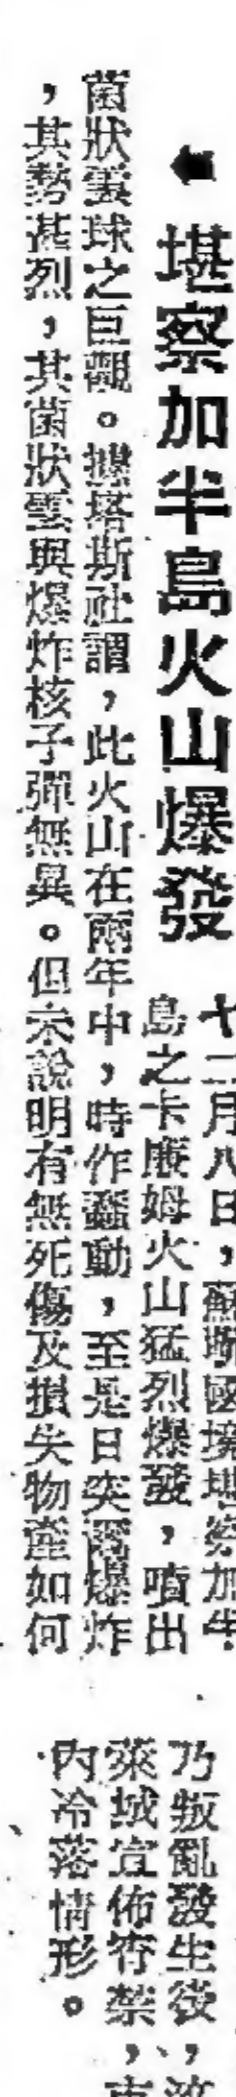 堪察加半島火山爆發
十二月八日，蘇聯國境堪察加半
島之卡廉姆火山猛烈爆發，噴出
菌狀雲球之巨觀。據塔斯社謂，此火山在兩年中，時作蠢動，至是日突爾爆炸
，其勢甚烈，其菌狀雲與爆炸核子彈無異。但未說明有無死傷及損失物產如何
乃叛亂發生後，
萊城宣佈宵禁，市
內冷落情形。